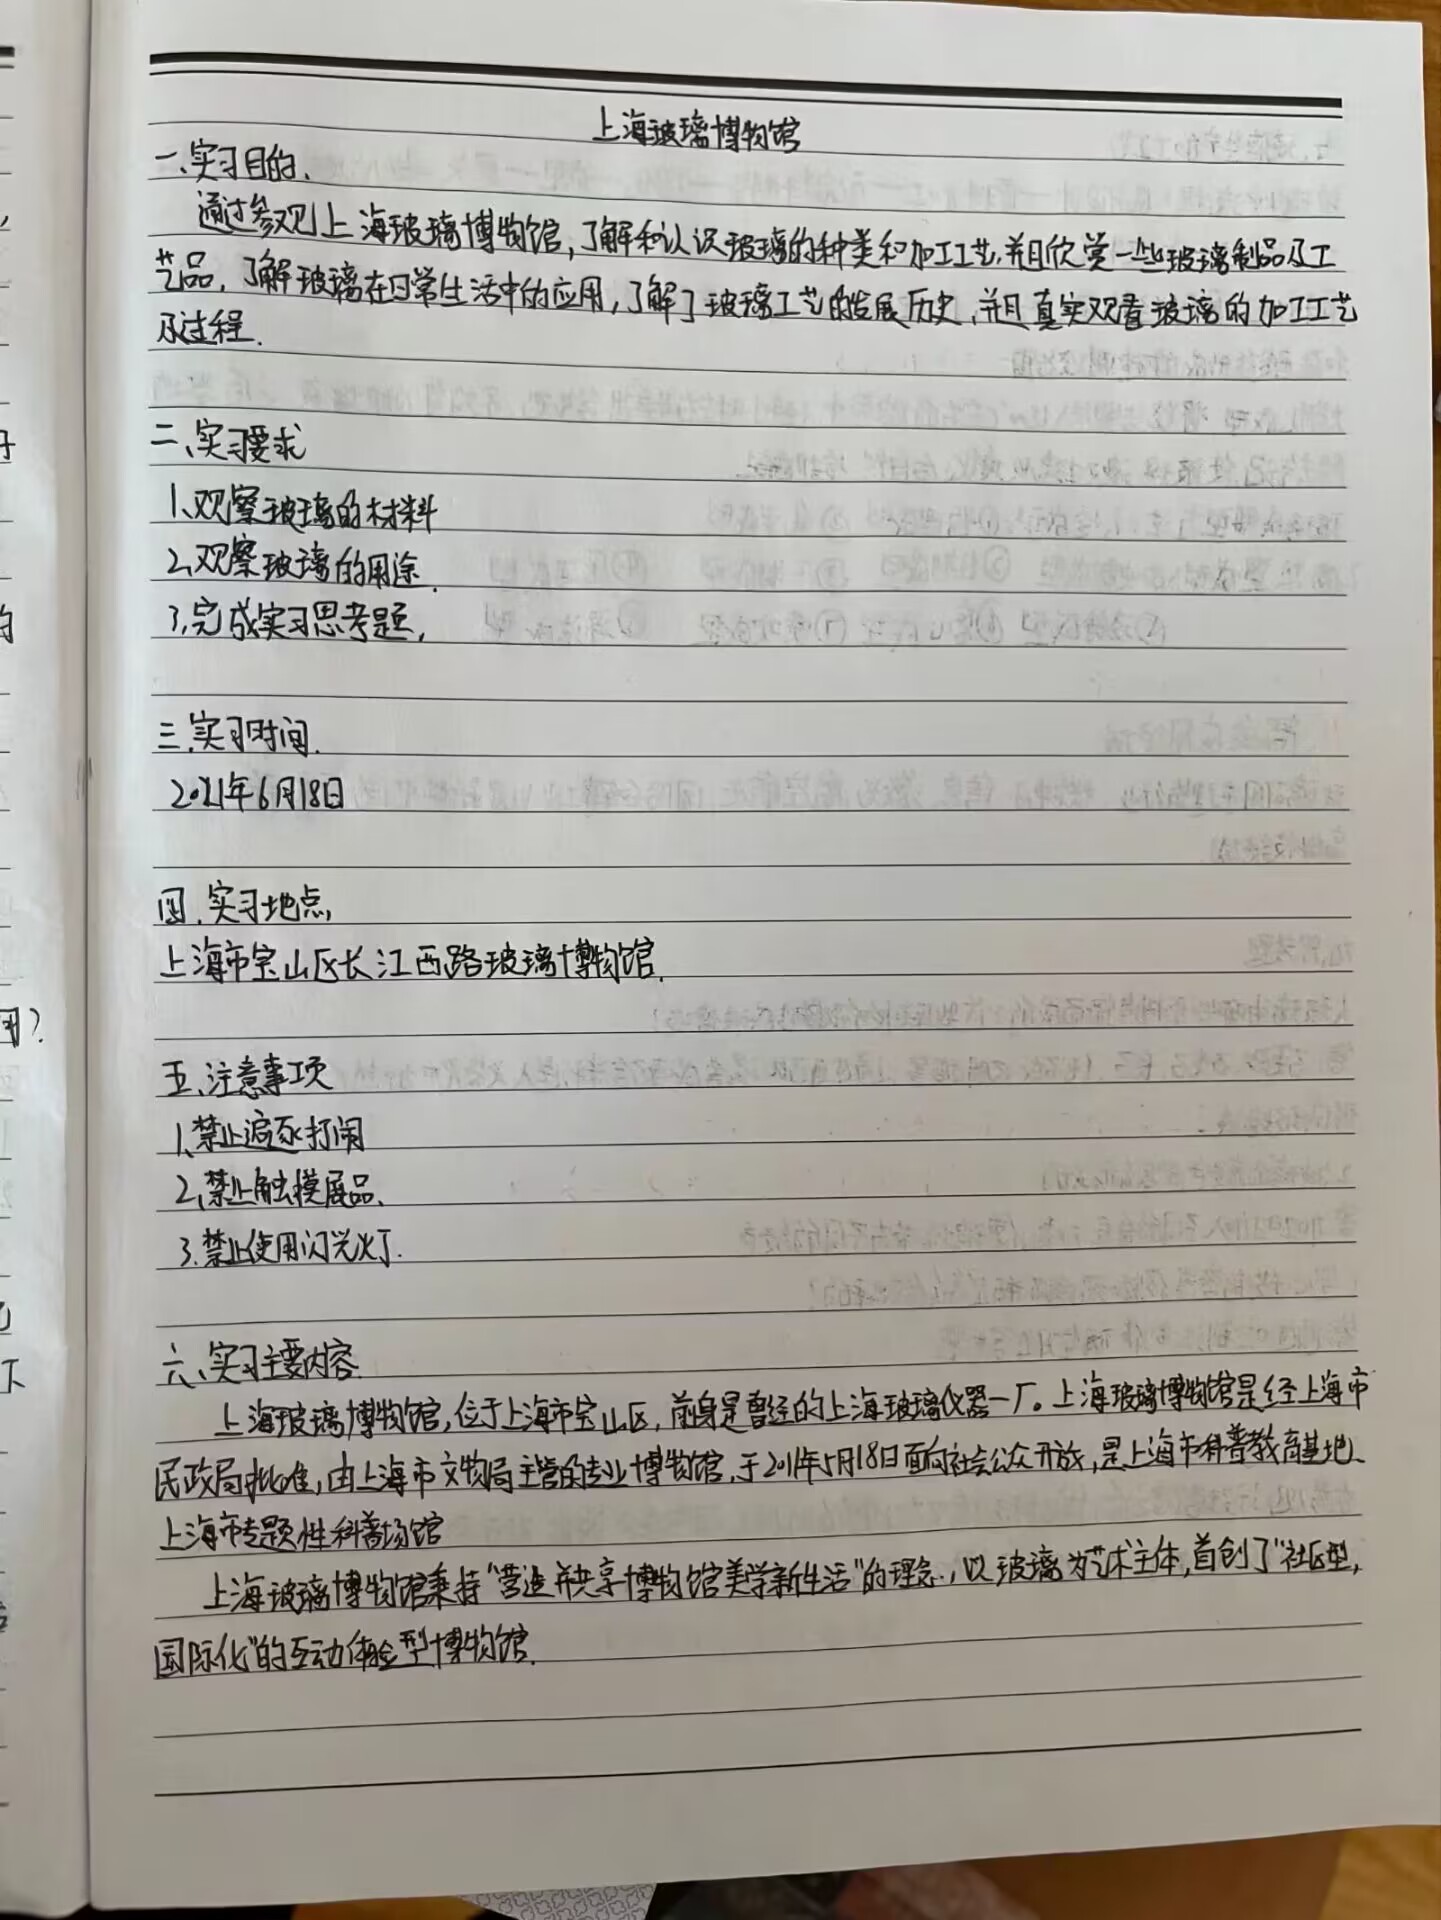 上海玻璃博物馆
一、实习目的.
通过参观上海玻璃博物馆,了解和认识玻璃的种类和加工工艺,并且欣赏一些玻璃制品及工
艺品,了解玻璃在日常生活中的应用,了解了玻璃工艺的发展历史,并且真实观看玻璃的加工工艺
及过程.
二、实习要求
1、观察玻璃的材料
2、观察玻璃的用途.
3、完成实习思考题,
三、实习时间.
2021年6月18日
四、实习地点,
上海市宝山区长江西路玻璃博物馆.
五、注意事项
1、禁止追逐打闹
2、禁止触摸展品、
3.禁止使用闪光灯.
六、实习主要内容.
上海玻璃博物馆,位于上海市宝山区,前身是曾经的上海玻璃仪器一厂。上海玻璃博物馆是经上海市
民政局批准,由上海市文物局主管的专业博物馆,于2011年5月18日面向社会公众开放,是上海市科普教育基地、
上海市专题性科普场馆
上海玻璃博物馆秉持“营造并共享博物馆美学新生活”的理念,以玻璃为艺术主体,首创了“社区型,
国际化”的互动体验型博物馆.